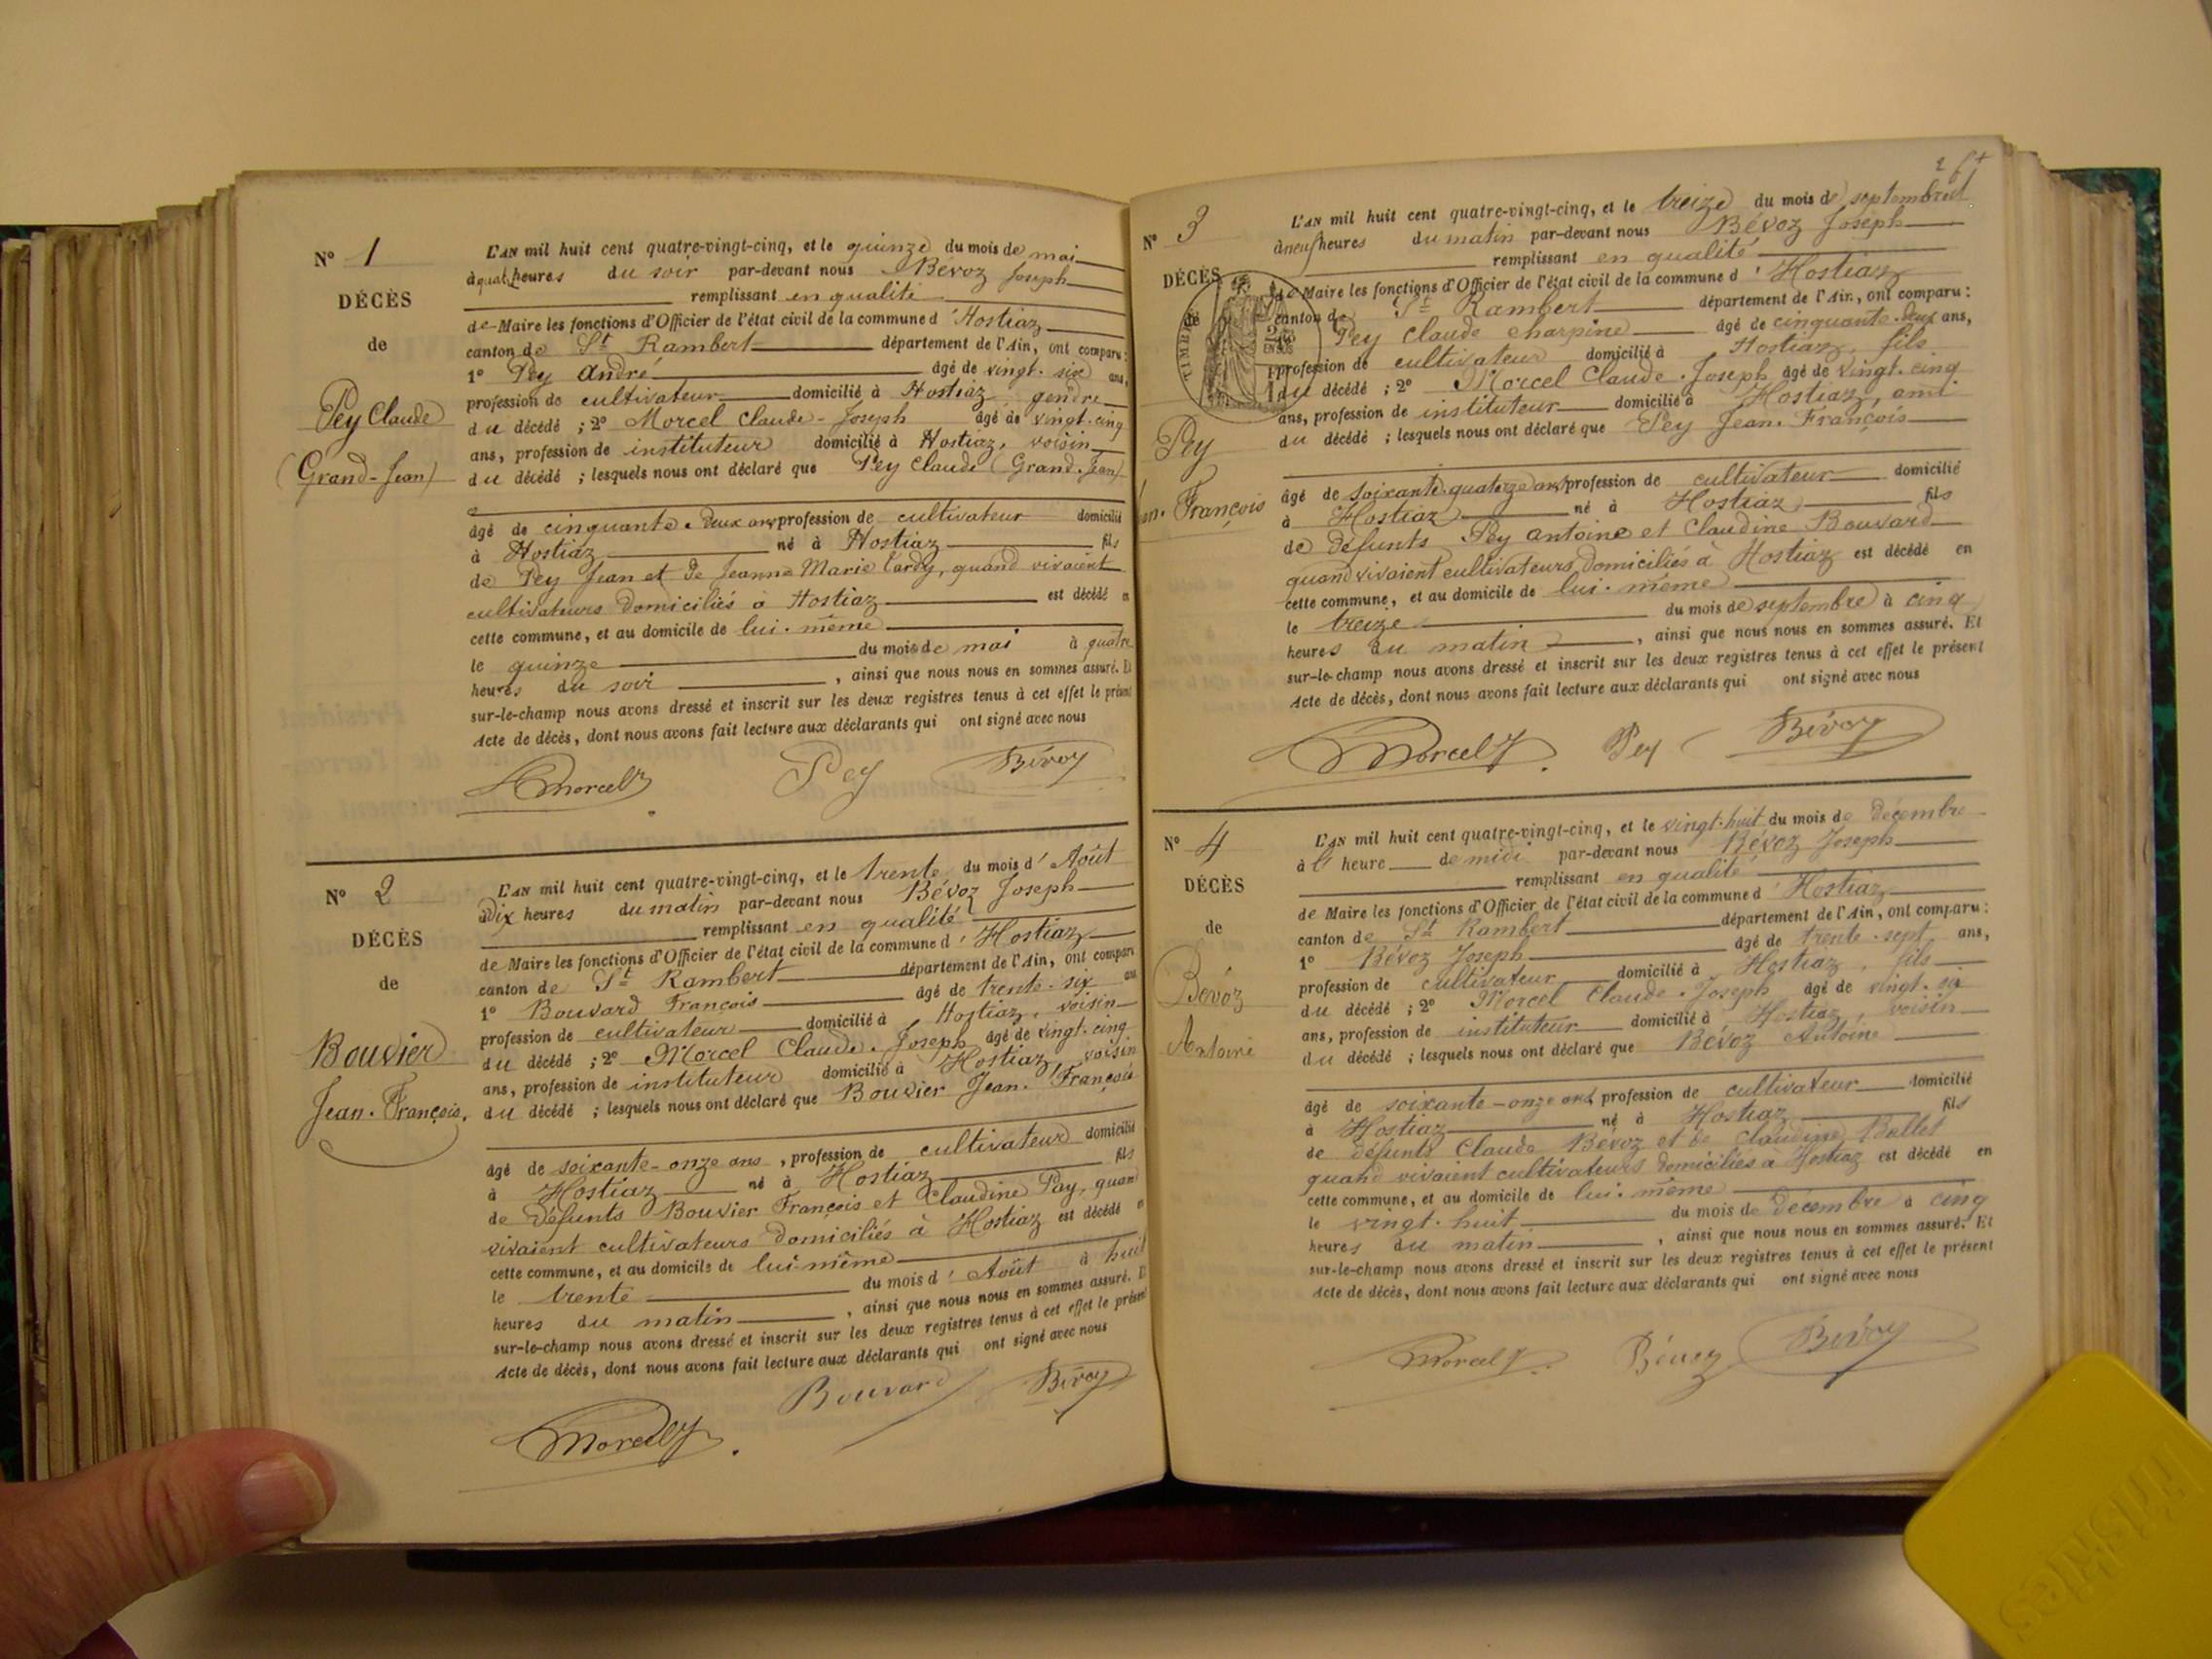 N° 1
DÉCÈS
de
Pey Claude
(Grand-Jean)
L'AN mil huit cent quatre-vingt-cinq, et le quinze du mois de mai
à quat. heures du soir par-devant nous Bévoz Joseph
remplissant en qualité
de Maire les fonctions d'Officier de l'état civil de la commune d'Hostiaz
canton de St Rambert département de l'Ain, ont comparu :
1° Pey André âgé de vingt-six ans,
profession de cultivateur domicilié à Hostiaz gendre
du décédé ; 2° Morcel Claude-Joseph âgé de vingt-cinq
ans, profession de instituteur domicilié à Hostiaz, voisin
du décédé ; lesquels nous ont déclaré que Pey Claude (Grand-Jean)
âgé de cinquante-deux ans profession de cultivateur domicilié
à Hostiaz né à Hostiaz fils
de Pey Jean et de Jeanne Marie Tardy, quand vivaient
cultivateurs domiciliés à Hostiaz est décédé en
cette commune, et au domicile de lui-même
le quinze du mois de mai à quatre
heures du soir , ainsi que nous nous en sommes assuré. Et
sur-le-champ nous avons dressé et inscrit sur les deux registres tenus à cet effet le présent
Acte de décès, dont nous avons fait lecture aux déclarants qui ont signé avec nous
Morcel Pey Bévoz
N° 2
DÉCÈS
de
Bouvier
Jean-François.
L'AN mil huit cent quatre-vingt-cinq, et le trente du mois d'Août
à Dix heures du matin par-devant nous Bévoz Joseph
remplissant en qualité
de Maire les fonctions d'Officier de l'état civil de la commune d'Hostiaz
canton de St Rambert département de l'Ain, ont comparu
1° Bouvard François âgé de trente-six ans
profession de cultivateur domicilié à Hostiaz, voisin
du décédé ; 2° Morcel Claude-Joseph âgé de vingt-cinq
ans, profession de instituteur domicilié à Hostiaz voisin
du décédé ; lesquels nous ont déclaré que Bouvier Jean-François
âgé de soixante-onze ans , profession de cultivateur domicilié
à Hostiaz né à Hostiaz fils
de défunts Bouvier François et Claudine Pay, quand
vivaient cultivateurs domiciliés à Hostiaz est décédé en
cette commune, et au domicile de lui-même
le trente du mois d'Août à huit
heures du matin , ainsi que nous nous en sommes assuré. Et
sur-le-champ nous avons dressé et inscrit sur les deux registres tenus à cet effet le présent
Acte de décès, dont nous avons fait lecture aux déclarants qui ont signé avec nous
Morcel Bouvard Bévoz
N° 3
DÉCÈS
de
Pey
Jean-François
L'AN mil huit cent quatre-vingt-cinq, et le treize du mois de septembre
à neuf heures du matin par-devant nous Bévoz Joseph
remplissant en qualité
de Maire les fonctions d'Officier de l'état civil de la commune d'Hostiaz
canton de St Rambert département de l'Ain, ont comparu :
Pey Claude Charpine âgé de cinquante-deux ans,
profession de cultivateur domicilié à Hostiaz, fils
du décédé ; 2° Morcel Claude-Joseph âgé de vingt-cinq
ans, profession de instituteur domicilié à Hostiaz, ami
du décédé ; lesquels nous ont déclaré que Pey Jean-François
âgé de soixante-quatorze ans profession de cultivateur domicilié
à Hostiaz né à Hostiaz fils
de défunts Pey Antoine et Claudine Bouvard
quand vivaient cultivateurs domiciliés à Hostiaz est décédé en
cette commune, et au domicile de lui-même
le treize du mois de septembre à cinq
heures du matin , ainsi que nous nous en sommes assuré. Et
sur-le-champ nous avons dressé et inscrit sur les deux registres tenus à cet effet le présent
Acte de décès, dont nous avons fait lecture aux déclarants qui ont signé avec nous
Morcel Pey Bévoz
N° 4
DÉCÈS
de
Bévoz
Antoine
L'AN mil huit cent quatre-vingt-cinq, et le vingt-huit du mois de décembre
à l'heure de midi par-devant nous Bévoz Joseph
remplissant en qualité
de Maire les fonctions d'Officier de l'état civil de la commune d'Hostiaz
canton de St Rambert département de l'Ain, ont comparu :
1° Bévoz Joseph âgé de trente-sept ans,
profession de cultivateur domicilié à Hostiaz, fils
du décédé ; 2° Morcel Claude-Joseph âgé de vingt-six
ans, profession de instituteur domicilié à Hostiaz, voisin
du décédé ; lesquels nous ont déclaré que Bévoz Antoine
âgé de soixante-onze ans profession de cultivateur domicilié
à Hostiaz né à Hostiaz fils
de défunts Claude Bévoz et de Claudine Ballet
quand vivaient cultivateurs domiciliés à Hostiaz est décédé en
cette commune, et au domicile de lui-même
le vingt-huit du mois de décembre à cinq
heures du matin , ainsi que nous nous en sommes assuré. Et
sur-le-champ nous avons dressé et inscrit sur les deux registres tenus à cet effet le présent
Acte de décès, dont nous avons fait lecture aux déclarants qui ont signé avec nous
Morcel Bévoz Bévoz